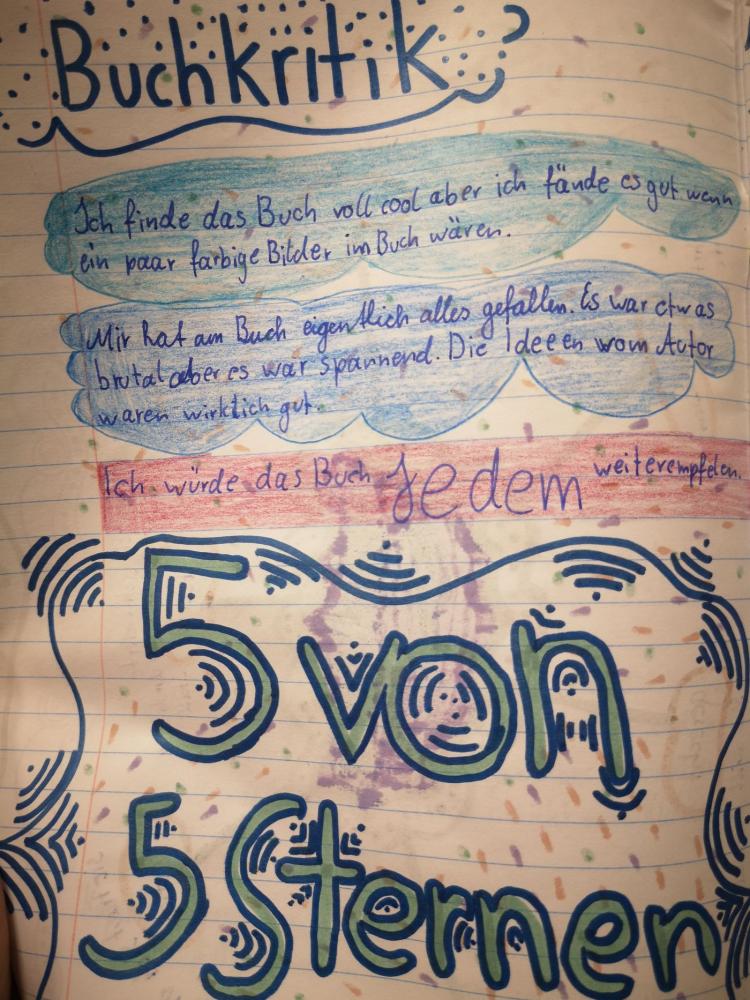 Buchkritik
Ich finde das Buch voll cool aber ich fände es gut wenn
ein paar farbige Bilder im Buch wären.
Mir hat am Buch eigentlich alles gefallen. Es war etwas
brutal aber es war spannend. Die Ideeen wom Autor
waren wirklich gut.
Ich würde das Buch Jedem weiterempfelen.
5 von
5 Sternen